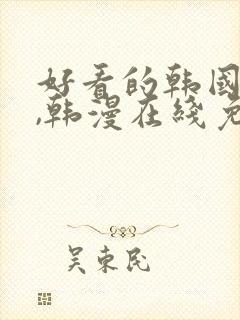 好看的韩国
,韩漫在线免
吴东民